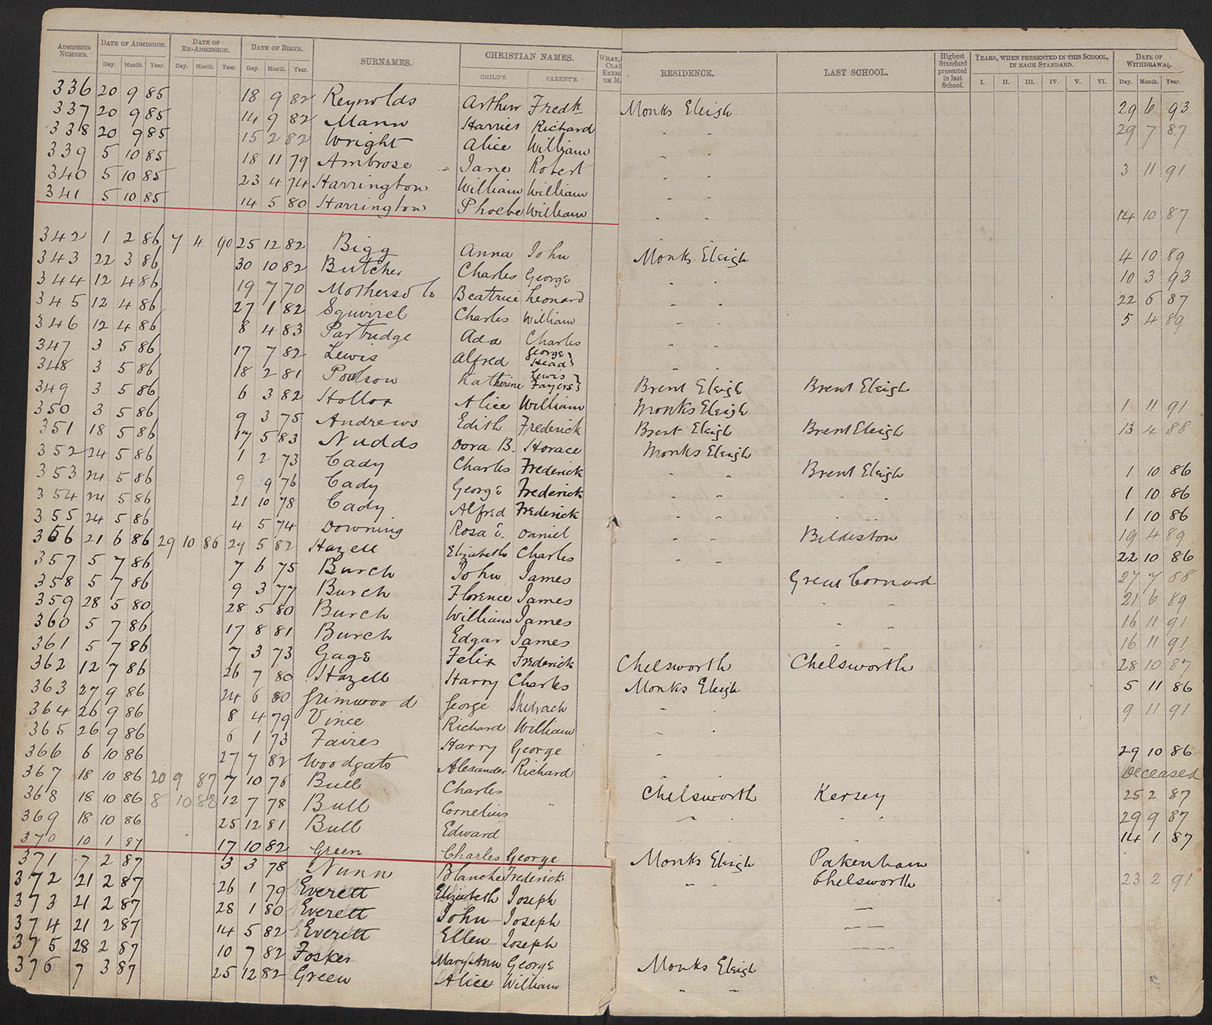 ADMISSION NUMBER. DATE OF ADMISSION. DATE OF RE-ADMISSION. DATE OF BIRTH. SURNAMES. CHRISTIAN NAMES. RESIDENCE. LAST SCHOOL. Highest Standard presented in last School. YEARS, WHEN PRESENTED IN THIS SCHOOL, IN EACH STANDARD. DATE OF WITHDRAWAL.
Day. Month. Year. Day. Month. Year. Day. Month. Year. CHILD'S. PARENT'S. I. II. III. IV. V. VI. Day. Month. Year.
336 20 9 85 18 9 82 Reynolds Arthur Fredk Monks Eleigh 29 6 93
337 20 9 85 14 9 82 Mann Harries Richard " " 29 7 87
338 20 9 85 15 2 82 Wright Alice William " "
339 5 10 85 18 11 79 Ambrose Jane Robert " " 3 11 91
340 5 10 85 23 4 74 Harrington William William " "
341 5 10 85 14 5 80 Harrington Phoebe William " " 14 10 87
342 1 2 86 7 4 90 25 12 82 Bigg Anna John Monks Eleigh 4 10 89
343 22 3 86 30 10 82 Butcher Charles George " " 10 3 93
344 12 4 86 19 7 70 Mothersole Beatrice Leonard " " 22 6 87
345 12 4 86 27 1 82 Squirrel Charles William " " 5 4 89
346 12 4 86 8 4 83 Partridge Ada Charles " "
347 3 5 86 17 7 82 Lewis Alfred George Head " "
348 3 5 86 18 2 81 Poulson Katherine Lewis Fayers Brent Eleigh Brent Eleigh
349 3 5 86 6 3 82 Hollox Alice William Monks Eleigh 1 11 91
350 3 5 86 9 3 75 Andrews Edith Frederick Brent Eleigh Brent Eleigh 13 4 88
351 18 5 86 17 5 83 Nudds Dora B. Horace Monks Eleigh
352 24 5 86 1 2 73 Cady Charles Frederick " " Brent Eleigh 1 10 86
353 24 5 86 9 9 76 Cady George Frederick " " " " 1 10 86
354 24 5 86 21 10 78 Cady Alfred Frederick " " " " 1 10 86
355 24 5 86 4 5 74 Downing Rosa E. Daniel " " Bildeston 19 4 89
356 21 6 86 29 10 86 29 5 82 Hazell Elizabeth Charles " " 22 10 86
357 5 7 86 7 6 75 Burch John James Great Cornard 27 7 88
358 5 7 86 9 3 77 Burch Florence James " " 21 6 89
359 28 5 80 28 5 80 Burch William James " " 16 11 91
360 5 7 86 17 8 81 Burch Edgar James " " 16 11 91
361 5 7 86 7 3 73 Gage Felix Frederick Chelsworth Chelsworth 28 10 87
362 12 7 86 26 7 80 Hazell Harry Charles Monks Eleigh 5 11 86
363 27 9 86 24 6 80 Grimwood George Shedrach " " 9 11 91
364 26 9 86 8 4 79 Vince Richard William " "
365 26 9 86 6 1 73 Faires Harry George " " 29 10 86
366 6 10 86 27 7 82 Woodgate Alexander Richard " " Deceased
367 18 10 86 20 9 87 7 10 76 Bull Charles Chelsworth Kersey 25 2 87
368 18 10 86 8 10 88 12 7 78 Bull Cornelius " " " 29 9 87
369 18 10 86 25 12 81 Bull Edward " " " 14 1 87
370 10 1 87 17 10 82 Green Charles George Monks Eleigh Pakenham
371 7 2 87 3 3 78 Nunn Blanche Frederick " " Chelsworth 23 2 91
372 21 2 87 26 1 79 Everett Elizabeth Joseph —
373 21 2 87 28 1 80 Everett John Joseph —
374 21 2 87 14 5 82 Everett Ellen Joseph —
375 28 2 87 10 7 82 Fosker Mary Ann George Monks Eleigh
376 7 3 87 25 12 82 Green Alice William " "